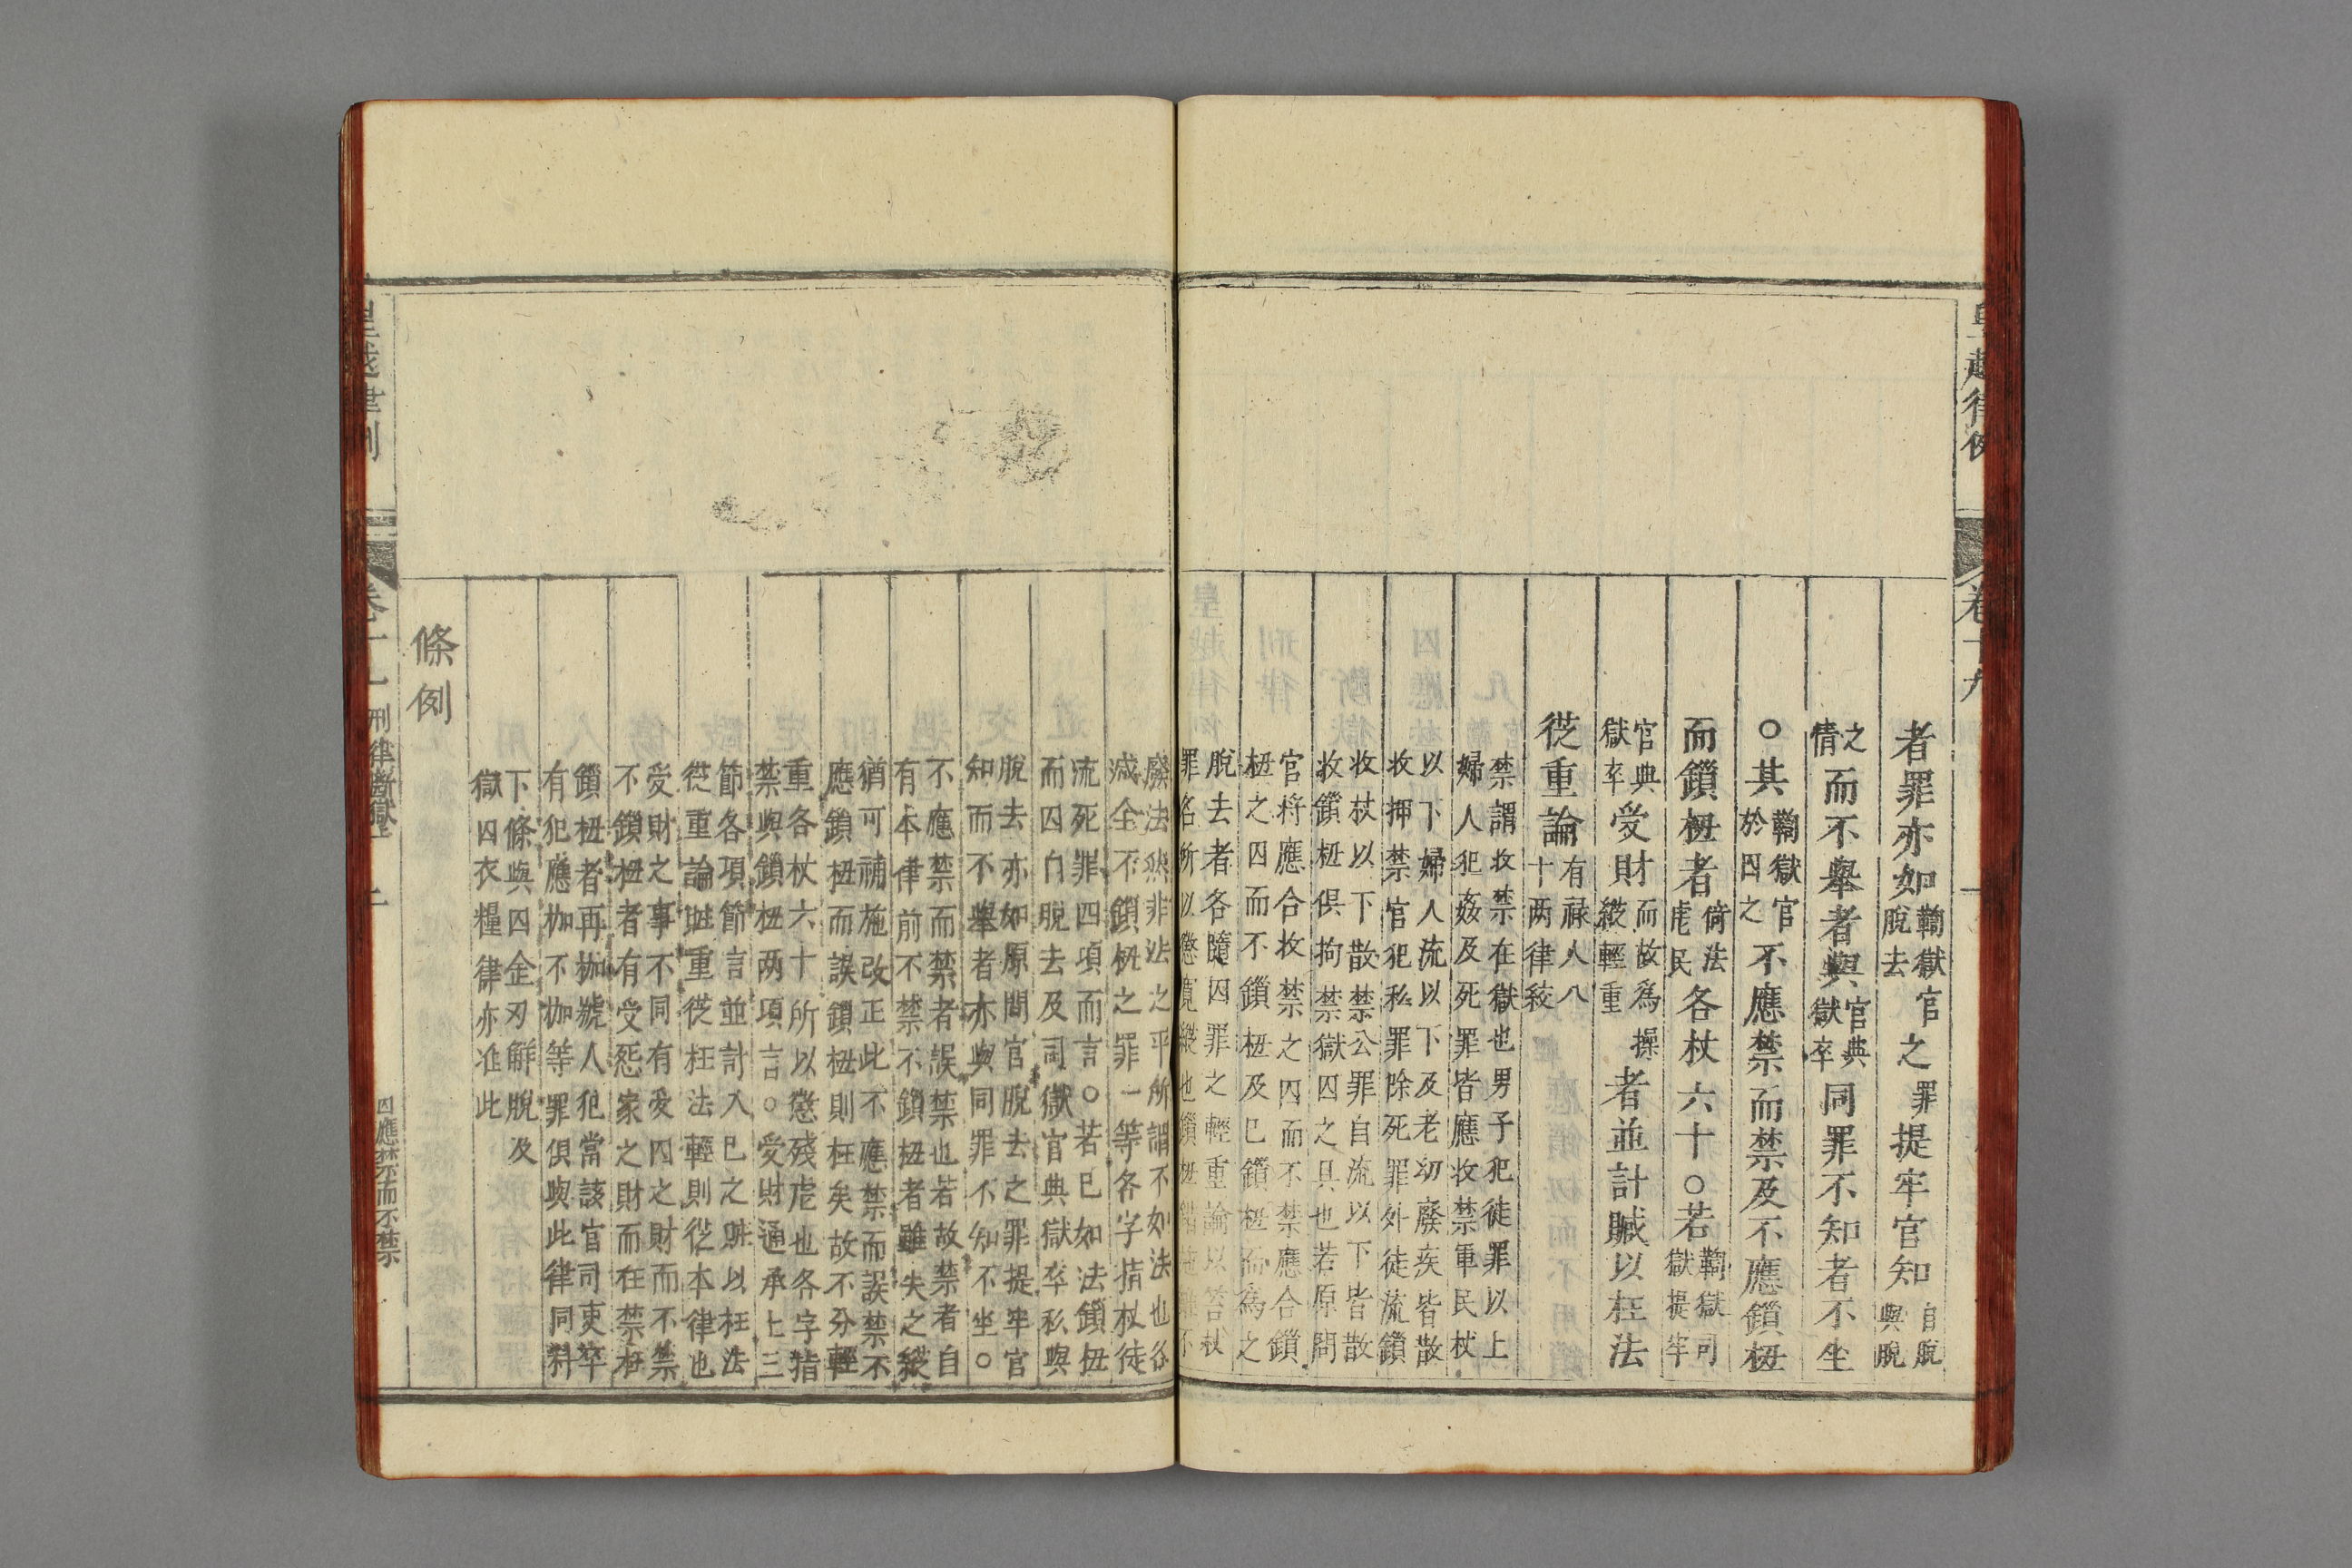 皇越律例 卷十九
者罪亦如鞫獄官之脫去罪提牢官知自脫與脫
之情而不舉者與官典獄卒同罪不知者不坐
○其鞫獄官於囚之不應禁而禁及不應鎖杻
而鎖杻者倚法虐民各杖六十○若鞫獄司獄提牢
官典獄卒受財而故為操縱輕重者並計贓以枉法
從重論有祿人八十兩律絞
禁謂收禁在獄也男子犯徒罪以上
婦人犯姦及死罪皆應收禁軍民杖
以下婦人流以下及老幼廢疾皆散
收押禁官犯私罪除死罪外徒流鎖
收杖以下散禁公罪自流以下皆散
收鎖杻俱拘禁獄囚之具也若原問
官将應合收禁之囚而不禁應合鎖
杻之囚而不鎖杻及已鎖杻而為之
脫去者各隨囚罪之輕重論以笞杖
罪名所以懲寬縱也鎖杻錯施雖不
廢法然非法之平所謂不如法也各
减全不鎖杻之罪一等各字指杖徒
流死罪四項而言○若已如法鎖杻
而囚自脫去及司獄官典獄卒私與
脫去亦如原問官脫去之罪提牢官
知而不舉者亦與同罪不知不坐○
不應禁而禁者誤禁也若故禁者自
有本律前不禁不鎖杻者雖失之縱
猶可補施改正此不應禁而誤禁不
應鎖杻而誤鎖杻則枉矣故不分輕
重各杖六十所以懲殘虐也各字指
禁與鎖杻两項言○受財通承上三
節各項節言並計入已之贓以枉法
從重論贓重從枉法輕則從本律也
受財之事不同有受囚之財而不禁
不鎖杻者有受怨家之財而在禁杻
鎖杻者再枷號人犯當該官司吏卒
有犯應枷不枷等罪俱與此律同科
下條與囚金刃解脫及
獄囚衣糧律亦准此
條例
皇越律例 卷十九 刑律斷獄上 二 囚應禁而不禁